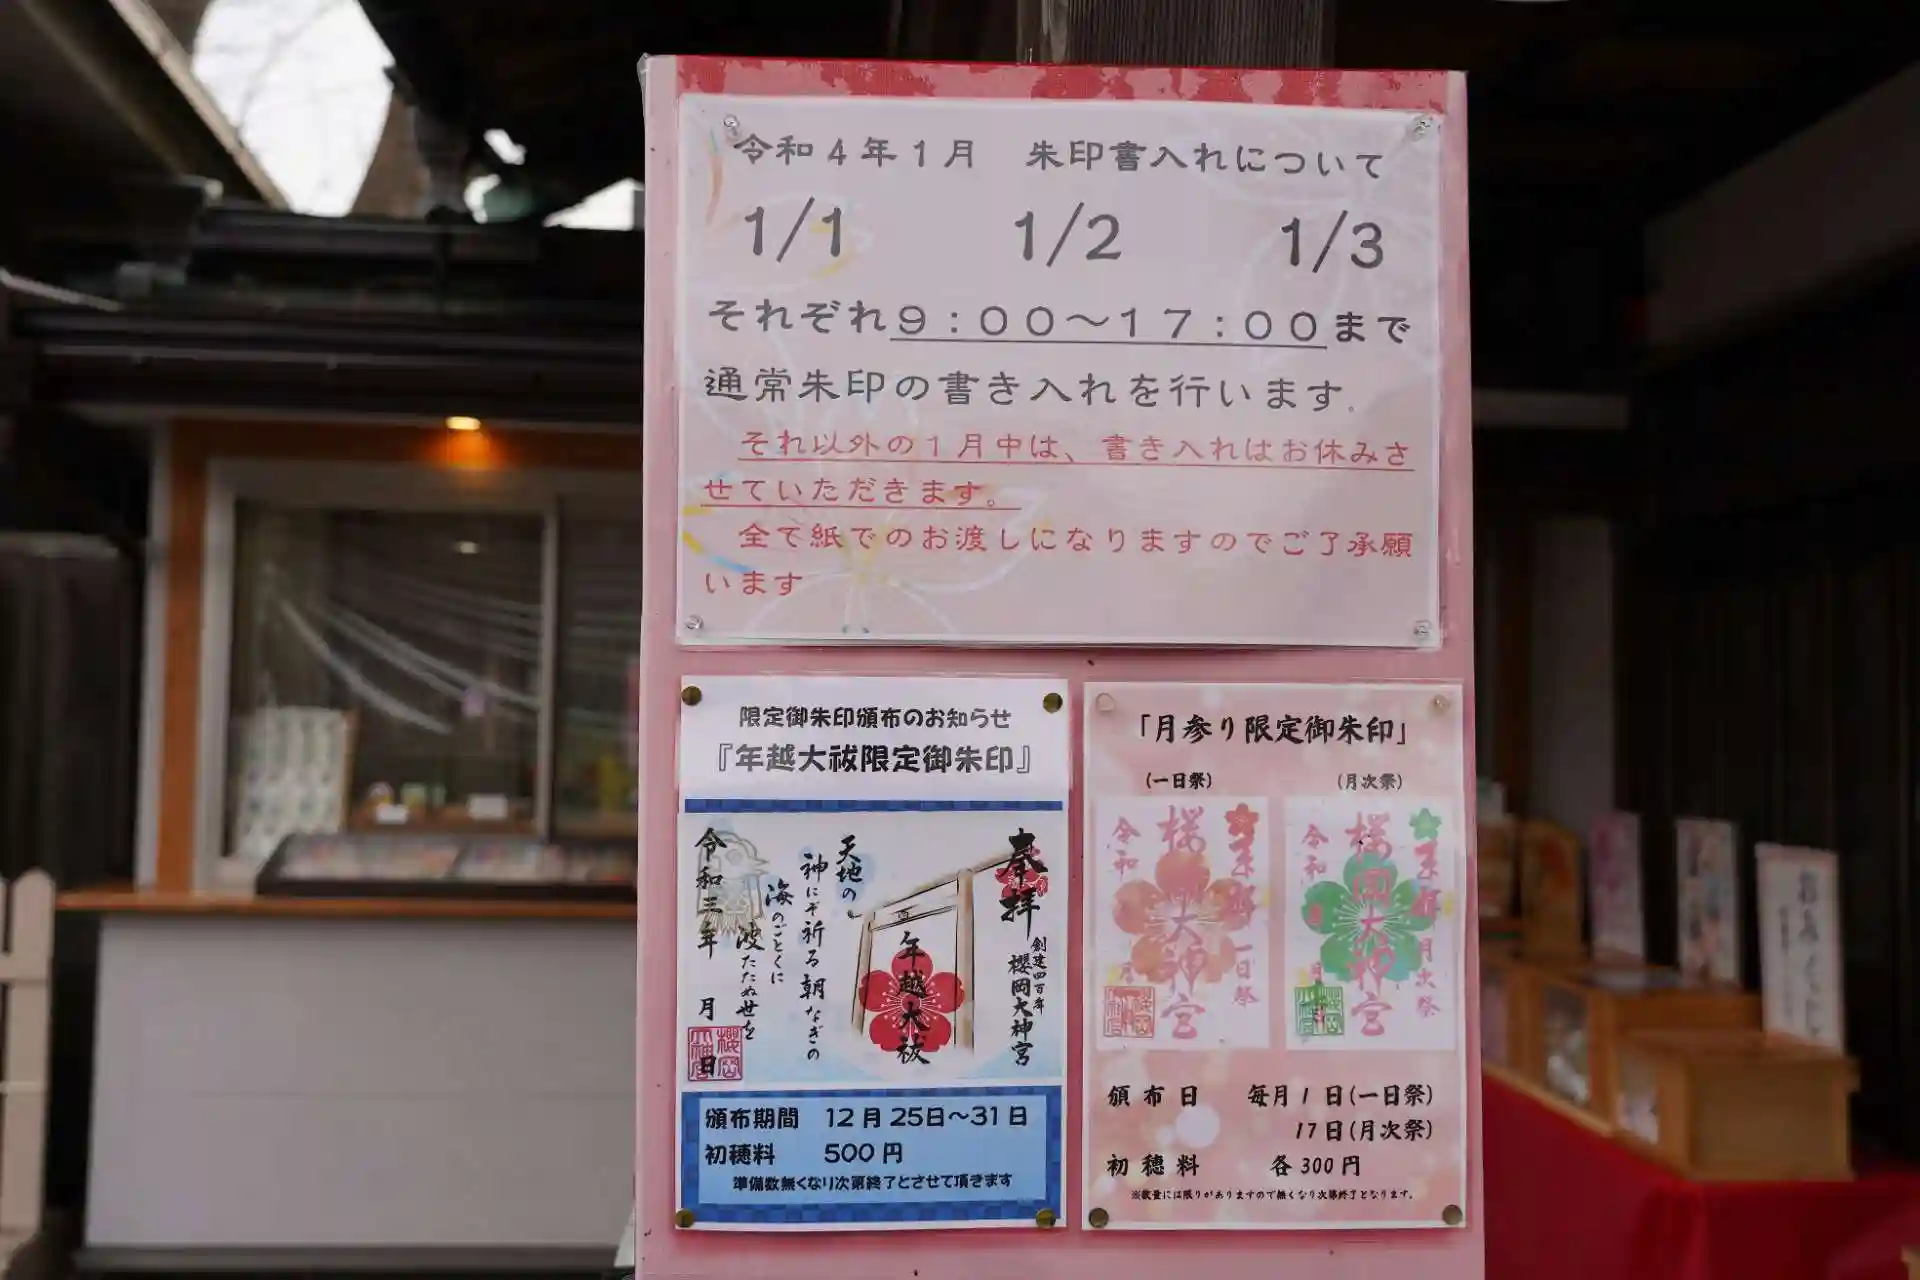 令和4年1月　朱印書入れについて
1/1　1/2　1/3
それぞれ9:00～17:00まで
通常朱印の書き入れを行います。
それ以外の1月中は、書き入れはお休みさ
せていただきます。
全て紙でのお渡しになりますのでご了承願
います
限定御朱印頒布のお知らせ
『年越大祓限定御朱印』
奉拝
創建四百年
櫻岡大神宮
年越大祓
天地の
神にぞ祈る朝なぎの
海のごとくに
波たたぬ世を
令和三年　月　日
頒布期間　12月25日～31日
初穂料　500円
準備数無くなり次第終了とさせて頂きます
「月参り限定御朱印」
(一日祭)
一日祭
桜岡大神宮
令和
月
(月次祭)
月次祭
桜岡大神宮
令和
月
頒布日　毎月1日(一日祭)
17日(月次祭)
初穂料　各300円
※数量には限りがありますので無くなり次第終了となります。